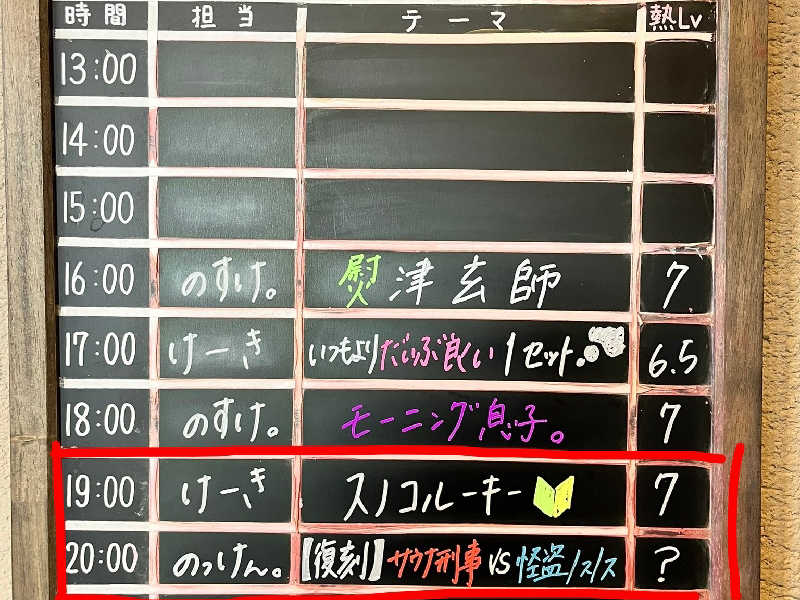 時間 担当 テーマ 熱Lv
13:00
14:00
15:00
16:00 のすけ。 熨津玄師 7
17:00 けーき いつもよりだいぶ良い1セット。 6.5
18:00 のすけ。 モーニング息子。 7
19:00 けーき スノコルーキー 7
20:00 のっけん。 【復刻】サウナ刑事VS怪盗ノスノス ?